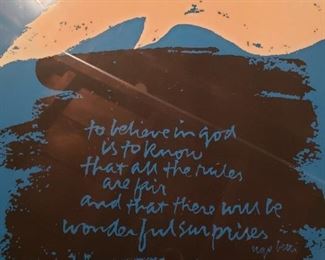 to believe in god
is to know
that all the rules
are fair
and that there will be
wonderful surprises
ugo betti